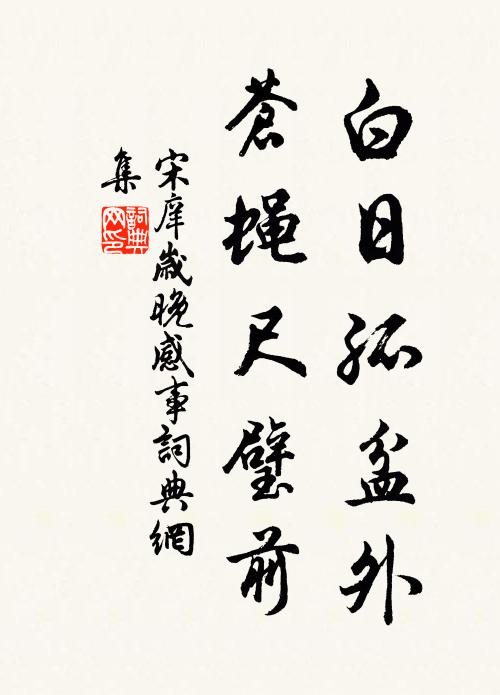 白日孤盆外
蒼蝇尺璧前
宋庠歲晚感事詞典網
集
詞典
网印